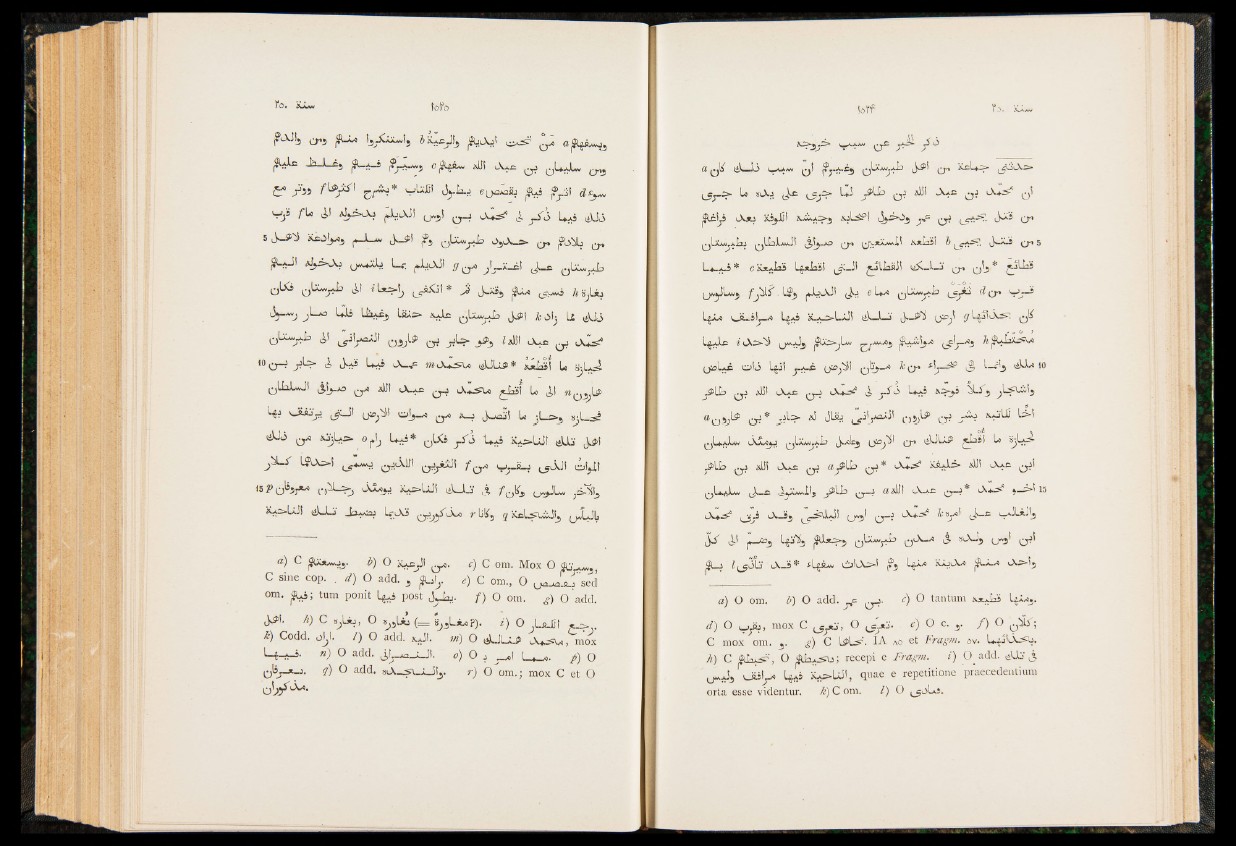 سنة ٢٥٠ ١٥٢٤
ذكر الخبر عن سبب خروجه
حدّثنى جماعة من اهل طبرستان وغيرهم انّ سبب ذلك كان a
ان محمّد بن عبد الله بن طاهر لمّا جرى على يده ما جرى
من قتل يحيى بن عمر ودخول اصحابه وجيشه الكوفة بعد فراغهم
5 من قتل يحيى b اقطعه المستعين من صوافى السلطان بطبرستان
قطائع *وان من تلك القطائع التى اقطعها قطيعة c *فيما
قرب من d ثغرى طبرستان مما e يلى الديلم وهما كلار f وسالوس
كان بحذائها g ارض لاهل تلك الناحية فيها مرافق منها
محتطبهم h ومراعى مواشيهم ومسرح سارحتهم وليس لاحد i عليها
10 ملك وانما هى صحراء من k موتان الارض غير انها ذات غياض
واشجار وكلأ فوجّه فيما ذكر لى محمد بن عبد الله بن طاهر
اخًا لكاتبه بشر بن هارون النصرانىّ يقال له جابر *بن هارون a
لحيازة ما اقطع هنالك من الارض وعامل طبرستان يومئذ سليمان
ابن عبد الله خليفة محمد *بن طاهر a بن عبد الله بن طاهر
15 اخو محمد *بن عبد الله a بن طاهر والمستولى على سليمان
والغالب على امره k محمد بن اوس البلخىّ وقد فرّق محمد
ابن اوس ولده فى مدن طبرستان وجعلهم ولاتها وضمّ الى كلّ
واحد منهم مدينة منها وهم احداث سفهاء *قد تأذّى l بهم
a) O om. b) O add. بن عمر. c) O tantum منها قطيعة.
d) O بقرب, mox C O. e) O c. و. f) O
C mox om. و. g) C. IA ٨٥ et Fragm. ٥٧.
h) C, O; recepi e Fragm. i) O add. فى تلك
الناحية فيها مرافق وليس, quae e repetitione praecedentium
orta esse videntur. k) C om. l) O
سنة ٢٥٠ ١٥٢٥
وبسفههم a من تحت ايديهم والرعيّة b واستنكروا منهم ومن والدهم
ومن سليمان بن عبد الله سفههم c وسيرهم فيهم وغلظ عليهم
سوء d اثرهم فيهم بقصص e يطول الكتاب *بشرح اكثرها f ووتر مع
ذلك فيما ذكر لى محمد بن اوس الديلم بدخوله الى ما f قرب
5 من بلادهم من حدود طبرستان وهم اهل سلم وموادعة لاهل
طبرستان على اغترار من g الديلم بما يلتمس بدخوله اليهم
بغارة h فسبى منهم وقتل ثم *انكفى راجعا i الى طبرستان فكان
ذلك مما زاد k اهل طبرستان عليه حنقا وغيظا فلمّا سار رسول
محمد بن عبد الله l وهو جابر بن هارون النصرانىّ الى طبرستان
10 لحيازة ما أقطعه *هنالك محمد m عمد فيما قيل لى جابر بن
هارون n الى ما أقطع محمد بن عبد الله من صوافى السلطان
فحازه وحاز ما اتصل به من موات الارض التى يرتفق بها
اهل تلك الناحية فيما ذكر فكان *فيما رام o حيازته من ذلك
الموات الذى بقرب من f الثغرين اللذين يسمى احدهما كلار
15 والآخر سالوس وكان f فى تلك الناحية يومئذ رجلان معروفان p
بالبأس والشجاعة q وكانا r مذكورين قديما بضبط تلك الناحية
a) C. b) O من الرعية. c) C om. Mox O وسيرتهم,
C sine cop. d) O add. و. e) C om., O sed
om. فيهم; tum ponit فيها post يطول. f) O om. g) O add.
اهل. h) C, O. i) O
k) Codd. اراد. l) O add. اليه. m) O هنالك محمد, mox
فيها. n) O add. النصرانى. o) O. p) O
يعرفان. q) O add. والنجدة. r) O om.; mox C et O
مذكوران.